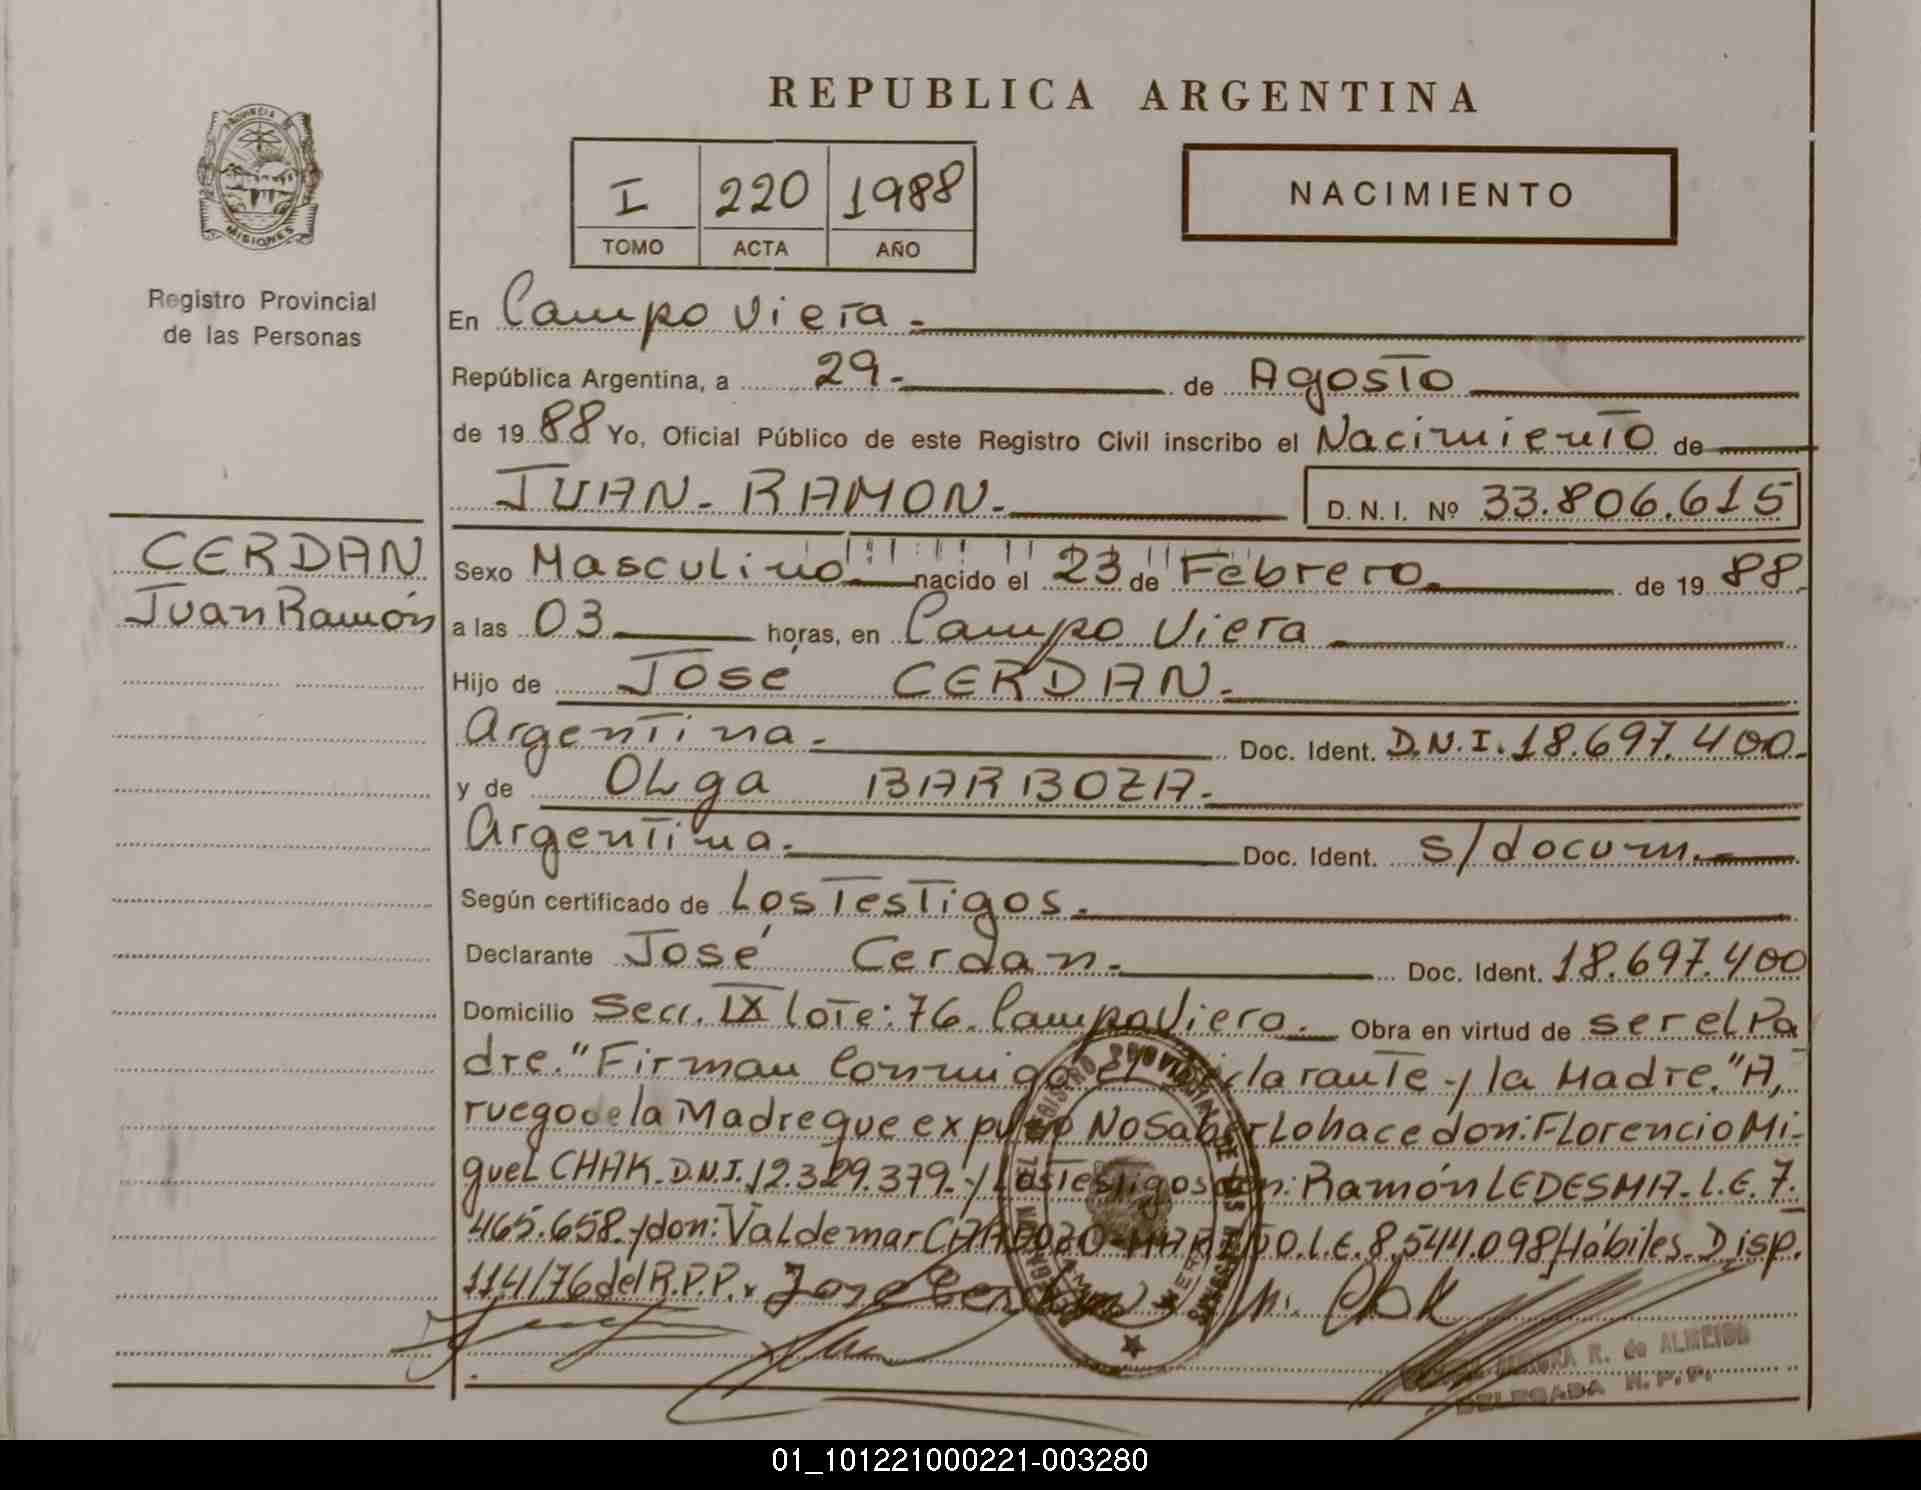 REPUBLICA ARGENTINA
PROVINCIA DE
MISIONES
Registro Provincial
de las Personas
I 220 1988
TOMO ACTA AÑO
NACIMIENTO
En Campo Viera.-
República Argentina, a 29.- de Agosto
de 1988 Yo, Oficial Público de este Registro Civil inscribo el Nacimiento de
JUAN - RAMON.- D. N. I. Nº 33.806.615
CERDAN
Juan Ramón
Sexo Masculino nacido el 23 de Febrero. de 1988.
a las 03 horas, en Campo Viera
Hijo de José CERDAN.-
Argentina.- Doc. Ident. D.N.I. 18.697.400.-
y de OLga BARBOZA.-
Argentina.- Doc. Ident. s/docum.-
Según certificado de Los Testigos.-
Declarante José Cerdan.- Doc. Ident. 18.697.400
Domicilio Secc. IX lote: 76. Campo Viera.- Obra en virtud de ser el Pa
dre." Firman conmigo el declarante y la Madre." A,
ruego de la Madre que expuso No Saber Lo hace don: Florencio Mi-
gueL CHAK. D.N.I. 12.329.379.- y Los Testigos don: Ramón LEDESMA. L.E. 7.
465.658. y don: Valdemar L.E. 8.544.098 Hábiles. Disp.
114/76 del R.P.P.
Jose Cerdan
R. de ALMEIDA
DELEGADA R.P.P.
01_101221000221-003280